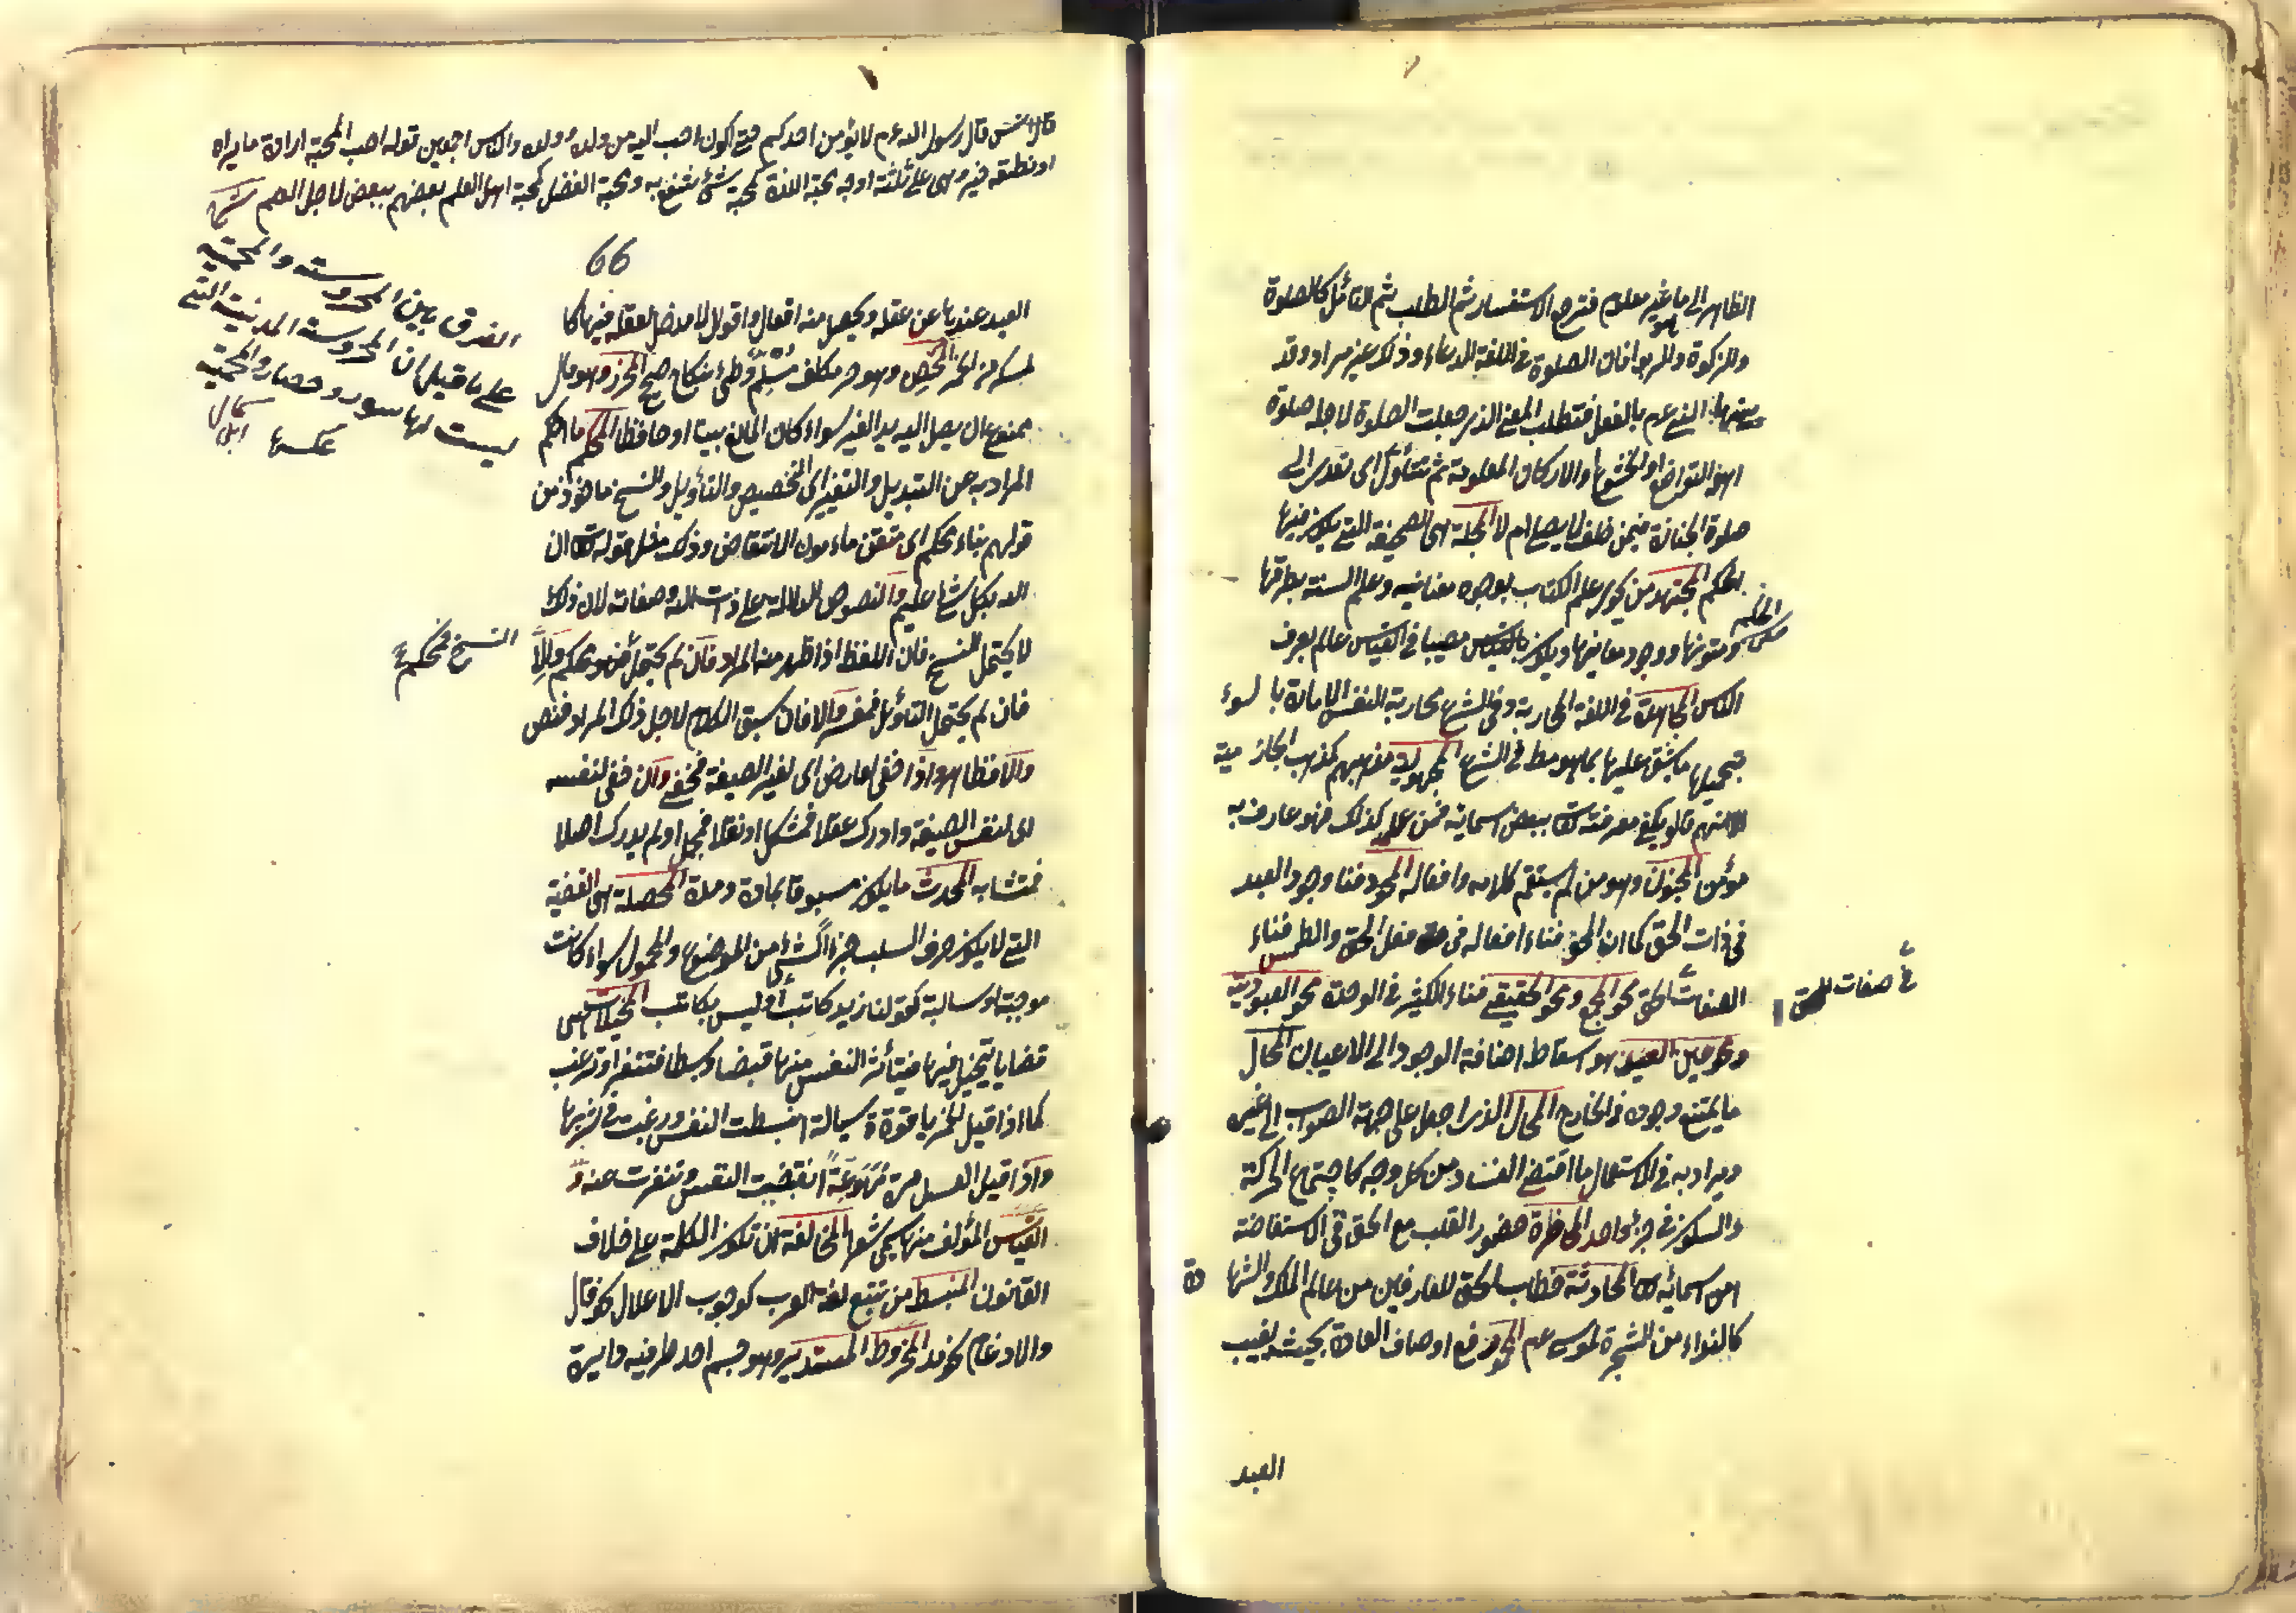 الظاهر الى ما هو غير معلوم فترجع الاستفسار ثم الطلب ثم التأمل كالصلوة
والزكوة والربوا فان الصلوة في اللغة الدعاء وذلك غير مراد وقد
بينها النبي عم بالفعل فتطلب المعنى الذى جعلت الصلوة لاجله صلوة
اهو التواضع او الخشوع او الاركان المعلومة ثم تتأول اى تعدى الى
صلوة الجنازة فيمن حلف لا يصلى ام لا المجلة هى الصحيفة التى يكون فيها
الحكم المجتهد من يحوى علم الكتاب بوجوه معانيه وعلم السنة بطرقها
ومتونها ووجوه معانيها ويكون بالقياس مصيبا في القياس عالم بعرف
الناس المجاهدة في اللغة المحاربة وفي الشرع محاربة النفس الامارة بالسوء
بتحميلها ما يشق عليها بما هو مط في الشرع المجهولية مذهبهم كمذهب الحازمية
الا انهم قالو يكفى معرفته تعا ببعض اسمائه فمن علمه كذلك فهو عارف به
مؤمن المجنون وهو من لم يستقم كلامه وافعاله المحو فناء وجود العبد
في ذات الحق كما ان المحق فناء افعاله في فعل الحق والطمس فناء
الصفات في صفات الحق محو الجمع ومحو الحقيقى فناء الكثير في الوحدة محو العبودية
ومحو عين العبد هو اسقاط اضافة الوجود الى الاعيان المحال
ما يمتنع وجوده في الخارج المحال الذى احيل على جهة الصواب الى غيره
ويراد به في الاستعمال ما اقتضى الفساد من كل وجه كاجتماع الحركة
والسكون في جزء واحد المحاضرة حضور القلب مع الحق في الاستفاضة
من اسمائه تعا المحادثة خطاب الحق للعارفين من عالم الملك والشهادة
كالنداء من الشجرة لموسى عم المحو رفع اوصاف العادة بحيث يغيب
العبد
قال انس قال رسول الله عم لا يؤمن احدكم حتى اكون احب اليه من ولده ووالده والناس اجمعين قوله احب المحبة ارادة ما يراه
او نطقه خير وهى على ثلثة اوجه محبة اللذة كمحبة شئ ينتفع به ومحبة الفضل كمحبة اهل العلم بعضهم ببعض لاجل العلم
66
الفرق بين المحروسة والمحمية
على ما قيل ان المحروسة المدينة التى
ليست لها سور وحصار والمحمية
عكسها
العبد عندها عن عقله ويحصل منه افعال واقوال لا مدخل لعقله فيها كا
لسكر من الخمر المحصن وهو حر مكلف مسلم وطئ بنكاح صحيح المحرز وهو مال
ممنوع ان يصل اليه يد الغير سواء كان المانع بيتا او حافظا المحكم ما احكم
المراد به عن التبديل والتغير اى التخصيص والتأويل والنسخ مأخوذ من
قولهم بناء محكم اى متقن مأمون الانتقاض وذلك مثل قوله تعا ان
الله بكل شئ عليم والنصوص الدالة على ذات الله وصفاته لان ذلك
لا يحتمل النسخ فان اللفظ اذا ظهر منه المراد فان لم يحتمل النسخ فمحكم والا
فان لم يحتمل التأويل فمفسر والا فان سيق الكلام لاجل ذلك المراد فنص
والا فظاهر واذا خفى لعارض اى لغير الصيغة فخفى وان خفى لنفسه
اى لنفس الصيغة وادرك عقلا فمشكل او نقلا فمجمل او لم يدرك اصلا
فمتشابه المحدث ما يكون مسبوقا بمادة ومدة المحصلة هى القضية
التى لا يكون حرف السلب جزأ لشئ من الموضوع والمحمول سواء كانت
موجبة او سالبة كقولنا زيد كاتب او ليس بكاتب المخيلات هى
قضايا يتخيل فيها فيتأثر النفس منها قبضا وبسطا فتنفر او ترغب
كما اذا قيل الخمر ياقوتة سيالة انبسطت النفس ورغبت في شربها
واذا قيل العسل مرة مهوعة انقبضت النفس وتنفرت عنه و
القياس المؤلف منها يسمى شعرا المخالفة ان تكون الكلمة على خلاف
القانون المستنبط من تتبع لغة العرب كوجوب الاعلال نحو قال
والادغام نحو مد المخروط المستدير وهو جسم احد طرفيه دائرة